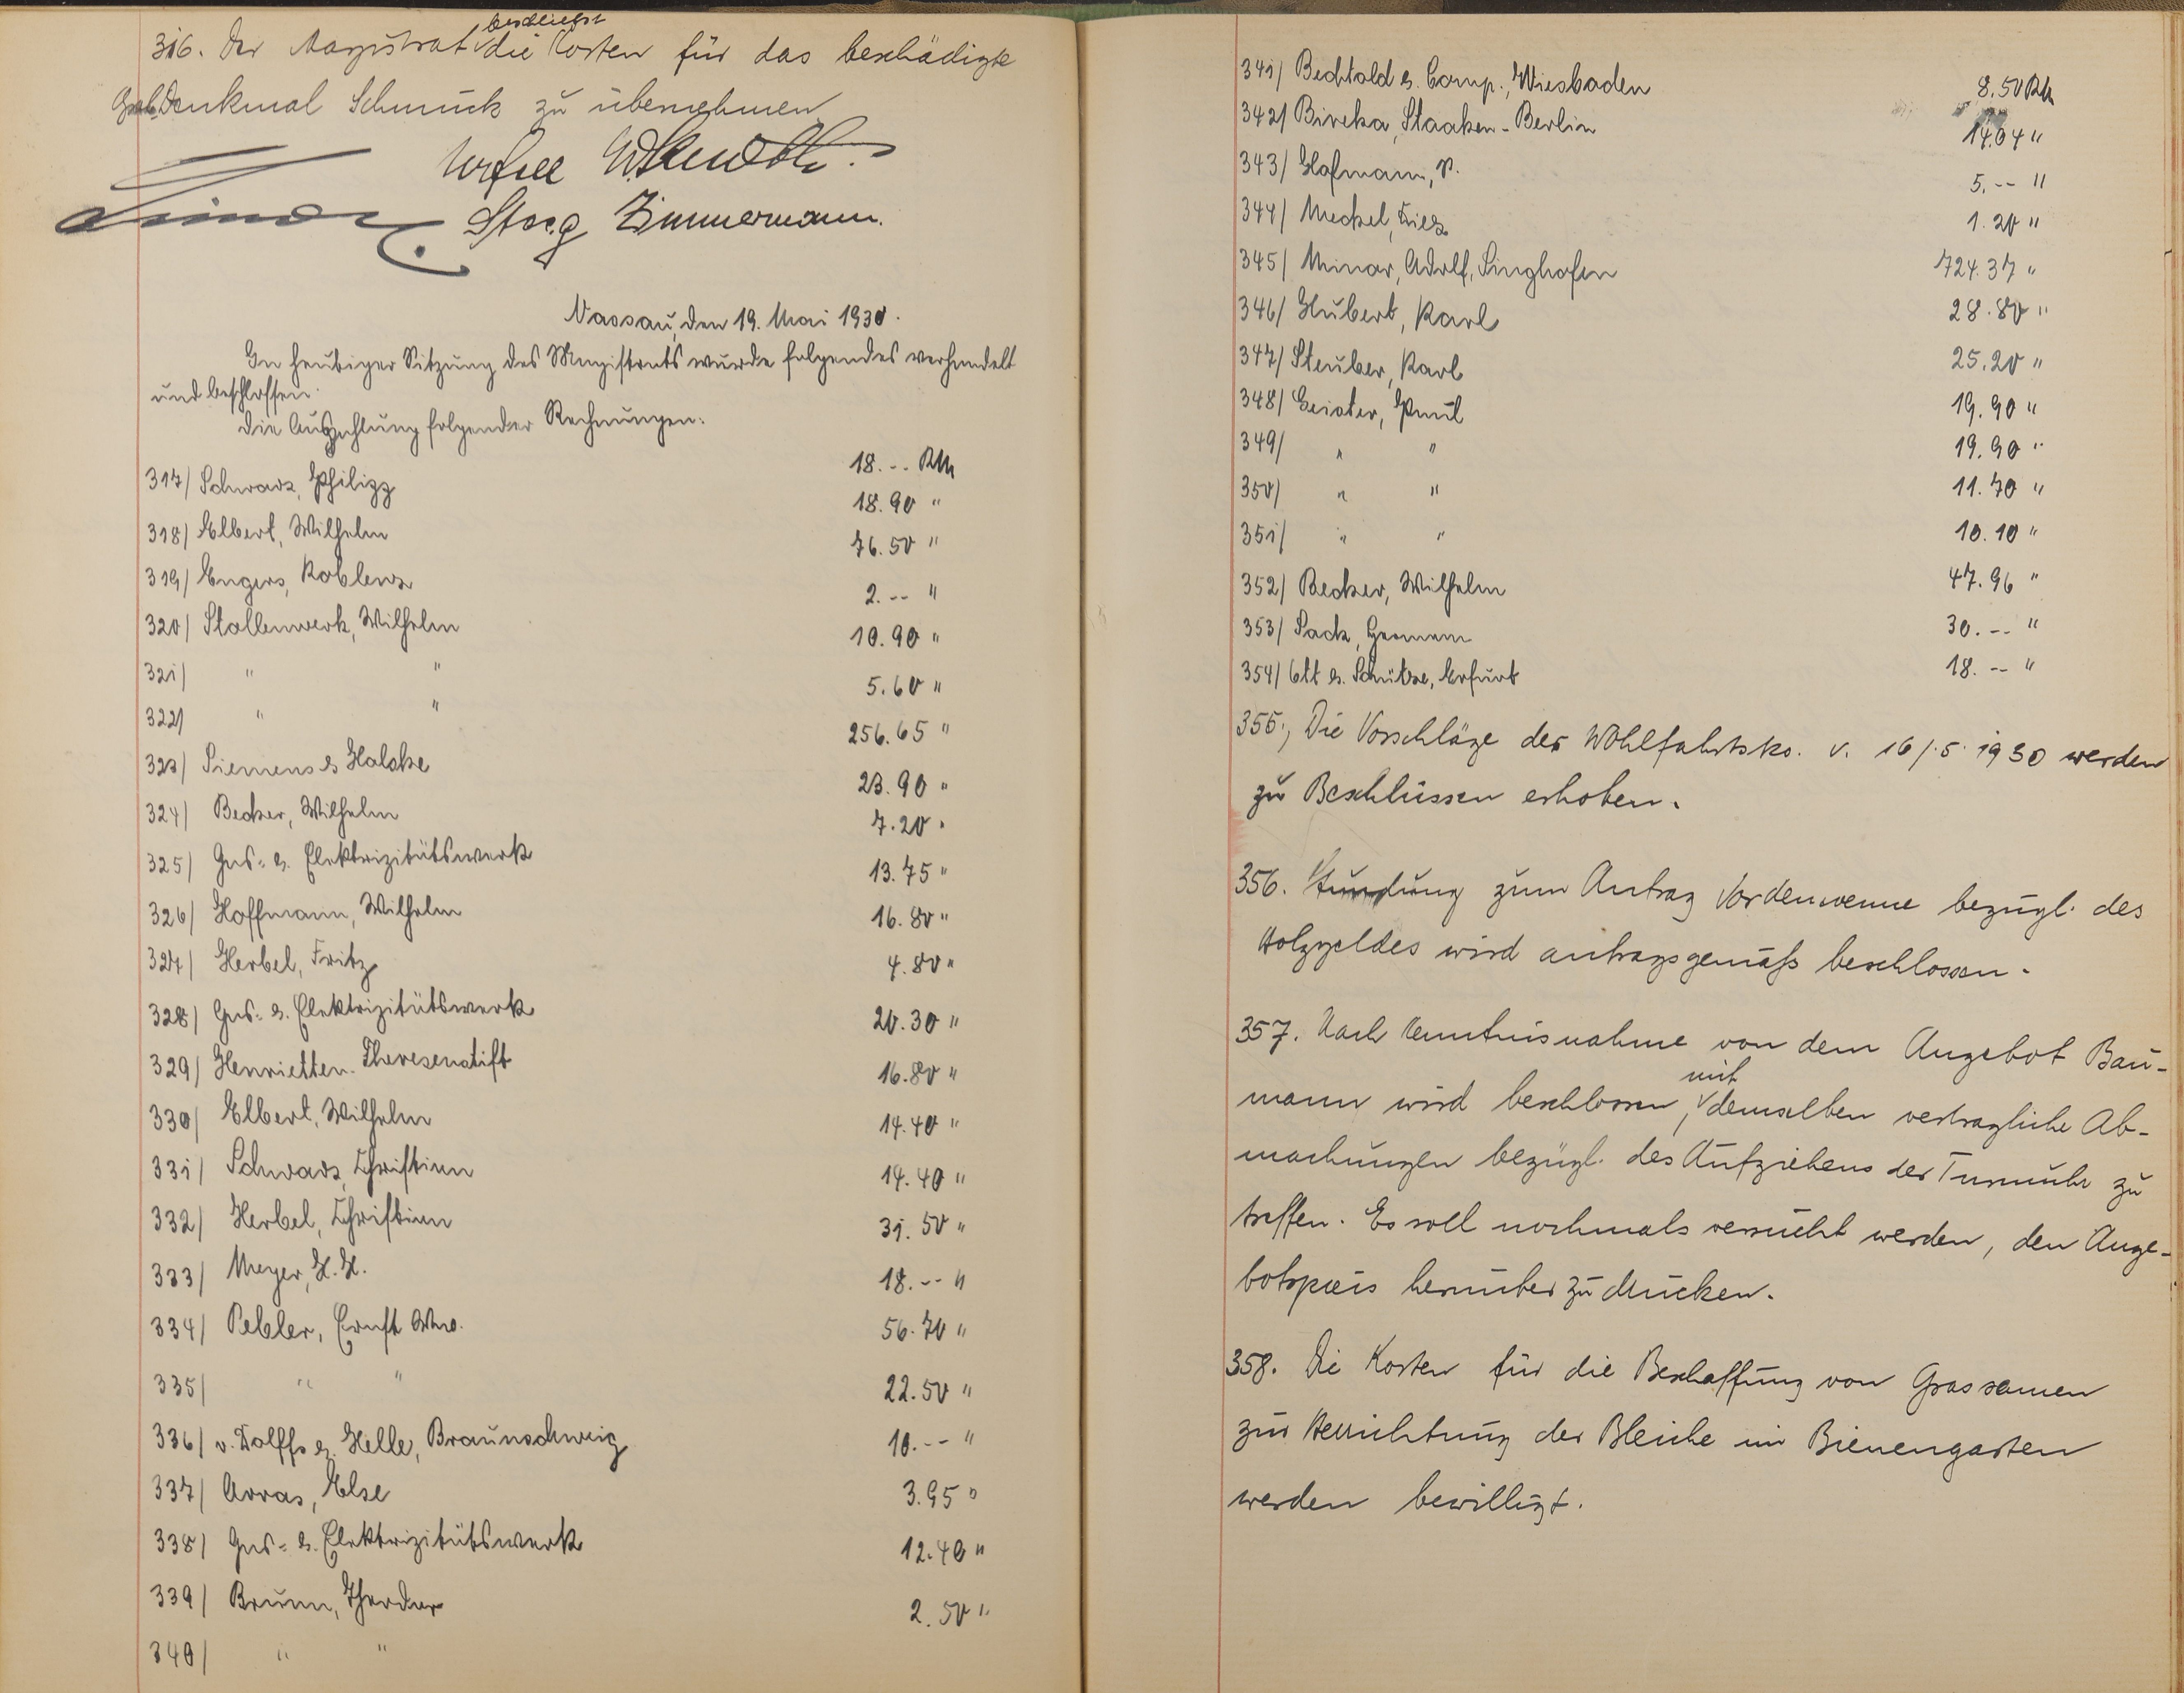 316. Der Magistrat beschließt die Kosten für das beschädigte
Grab Denkmal Schmuck zu übernehmen
Zimmermann.
Nassau, den 19. Mai 1930.
In heutiger Sitzung des Magistrats wurde folgendes verhandelt
und beschlossen:
Die Auszahlung folgender Rechnungen:
317/ Schwarz, Philipp 18.-- RM
318/ Elbert, Wilhelm 18.90 "
319/ Engers, Koblenz 76.50 "
320/ Stollenwerk, Wilhelm 2.-- "
321/ " " 10.90 "
322/ " " 5.60 "
323/ Siemens & Halske 256.65 "
324/ Becker, Wilhelm 23.90 "
325/ Gas- & Elektrizitätswerk 7.20 "
326/ Hoffmann, Wilhelm 13.75 "
327/ Herbel, Fritz 16.80 "
328/ Gas- & Elektrizitätswerk 4.80 "
329/ Henrietten-Theresenstift 20.30 "
330/ Elbert, Wilhelm 16.80 "
331/ Schwarz, Christian 14.40 "
332/ Herbel, Christian 14.40 "
333/ Meyer, H. H. 31.50 "
334/ Pebler, Ernst Ww. 18.-- "
335/ " " 56.70 "
336/ v. Dolffs & Helle, Braunschweig 22.50 "
337/ Arras, Else 10.-- "
338/ Gas- & Elektrizitätswerk 3.95 "
339/ Brunn, Theodor 12.40 "
340/ " " 2.50 "
341/ Bechtold & Comp., Wiesbaden 8.50 RM
342/ Bireka, Staaken-Berlin 14.04 "
343/ Hofmann, P. 5.-- "
344/ Meckel, Diez 1.20 "
345/ Minor, Adolf, Singhofen 724.37 "
346/ Hubert, Karl 28.80 "
347/ Steuber, Karl 25.20 "
348/ Geister, Paul 19.90 "
349/ " " 19.90 "
350/ " " 11.70 "
351/ " " 10.10 "
352/ Becker, Wilhelm 47.96 "
353/ Sack, Hermann 30.-- "
354/ Ott & Schütze, Erfurt 18.-- "
355., Die Vorschläge der Wohlfahrtsko. v. 16/.5. 1930 werden
zu Beschlüssen erhoben.
356. Stundung zum Antrag Vordenwenne bezügl. des
Holzgeldes wird antragsgemäß beschlossen.
357. Nach Kenntnisnahme von dem Angebot Bau-
mann wird beschlossen, mit demselben vertragliche Ab-
machungen bezügl. des Aufziehens der Turmuhr zu
treffen. Es soll nochmals versucht werden, den Ange-
botspreis herunter zu drücken.
358. Die Kosten für die Beschaffung von Grassamen
zur Herrichtung der Bleiche im Bienengarten
werden bewilligt.